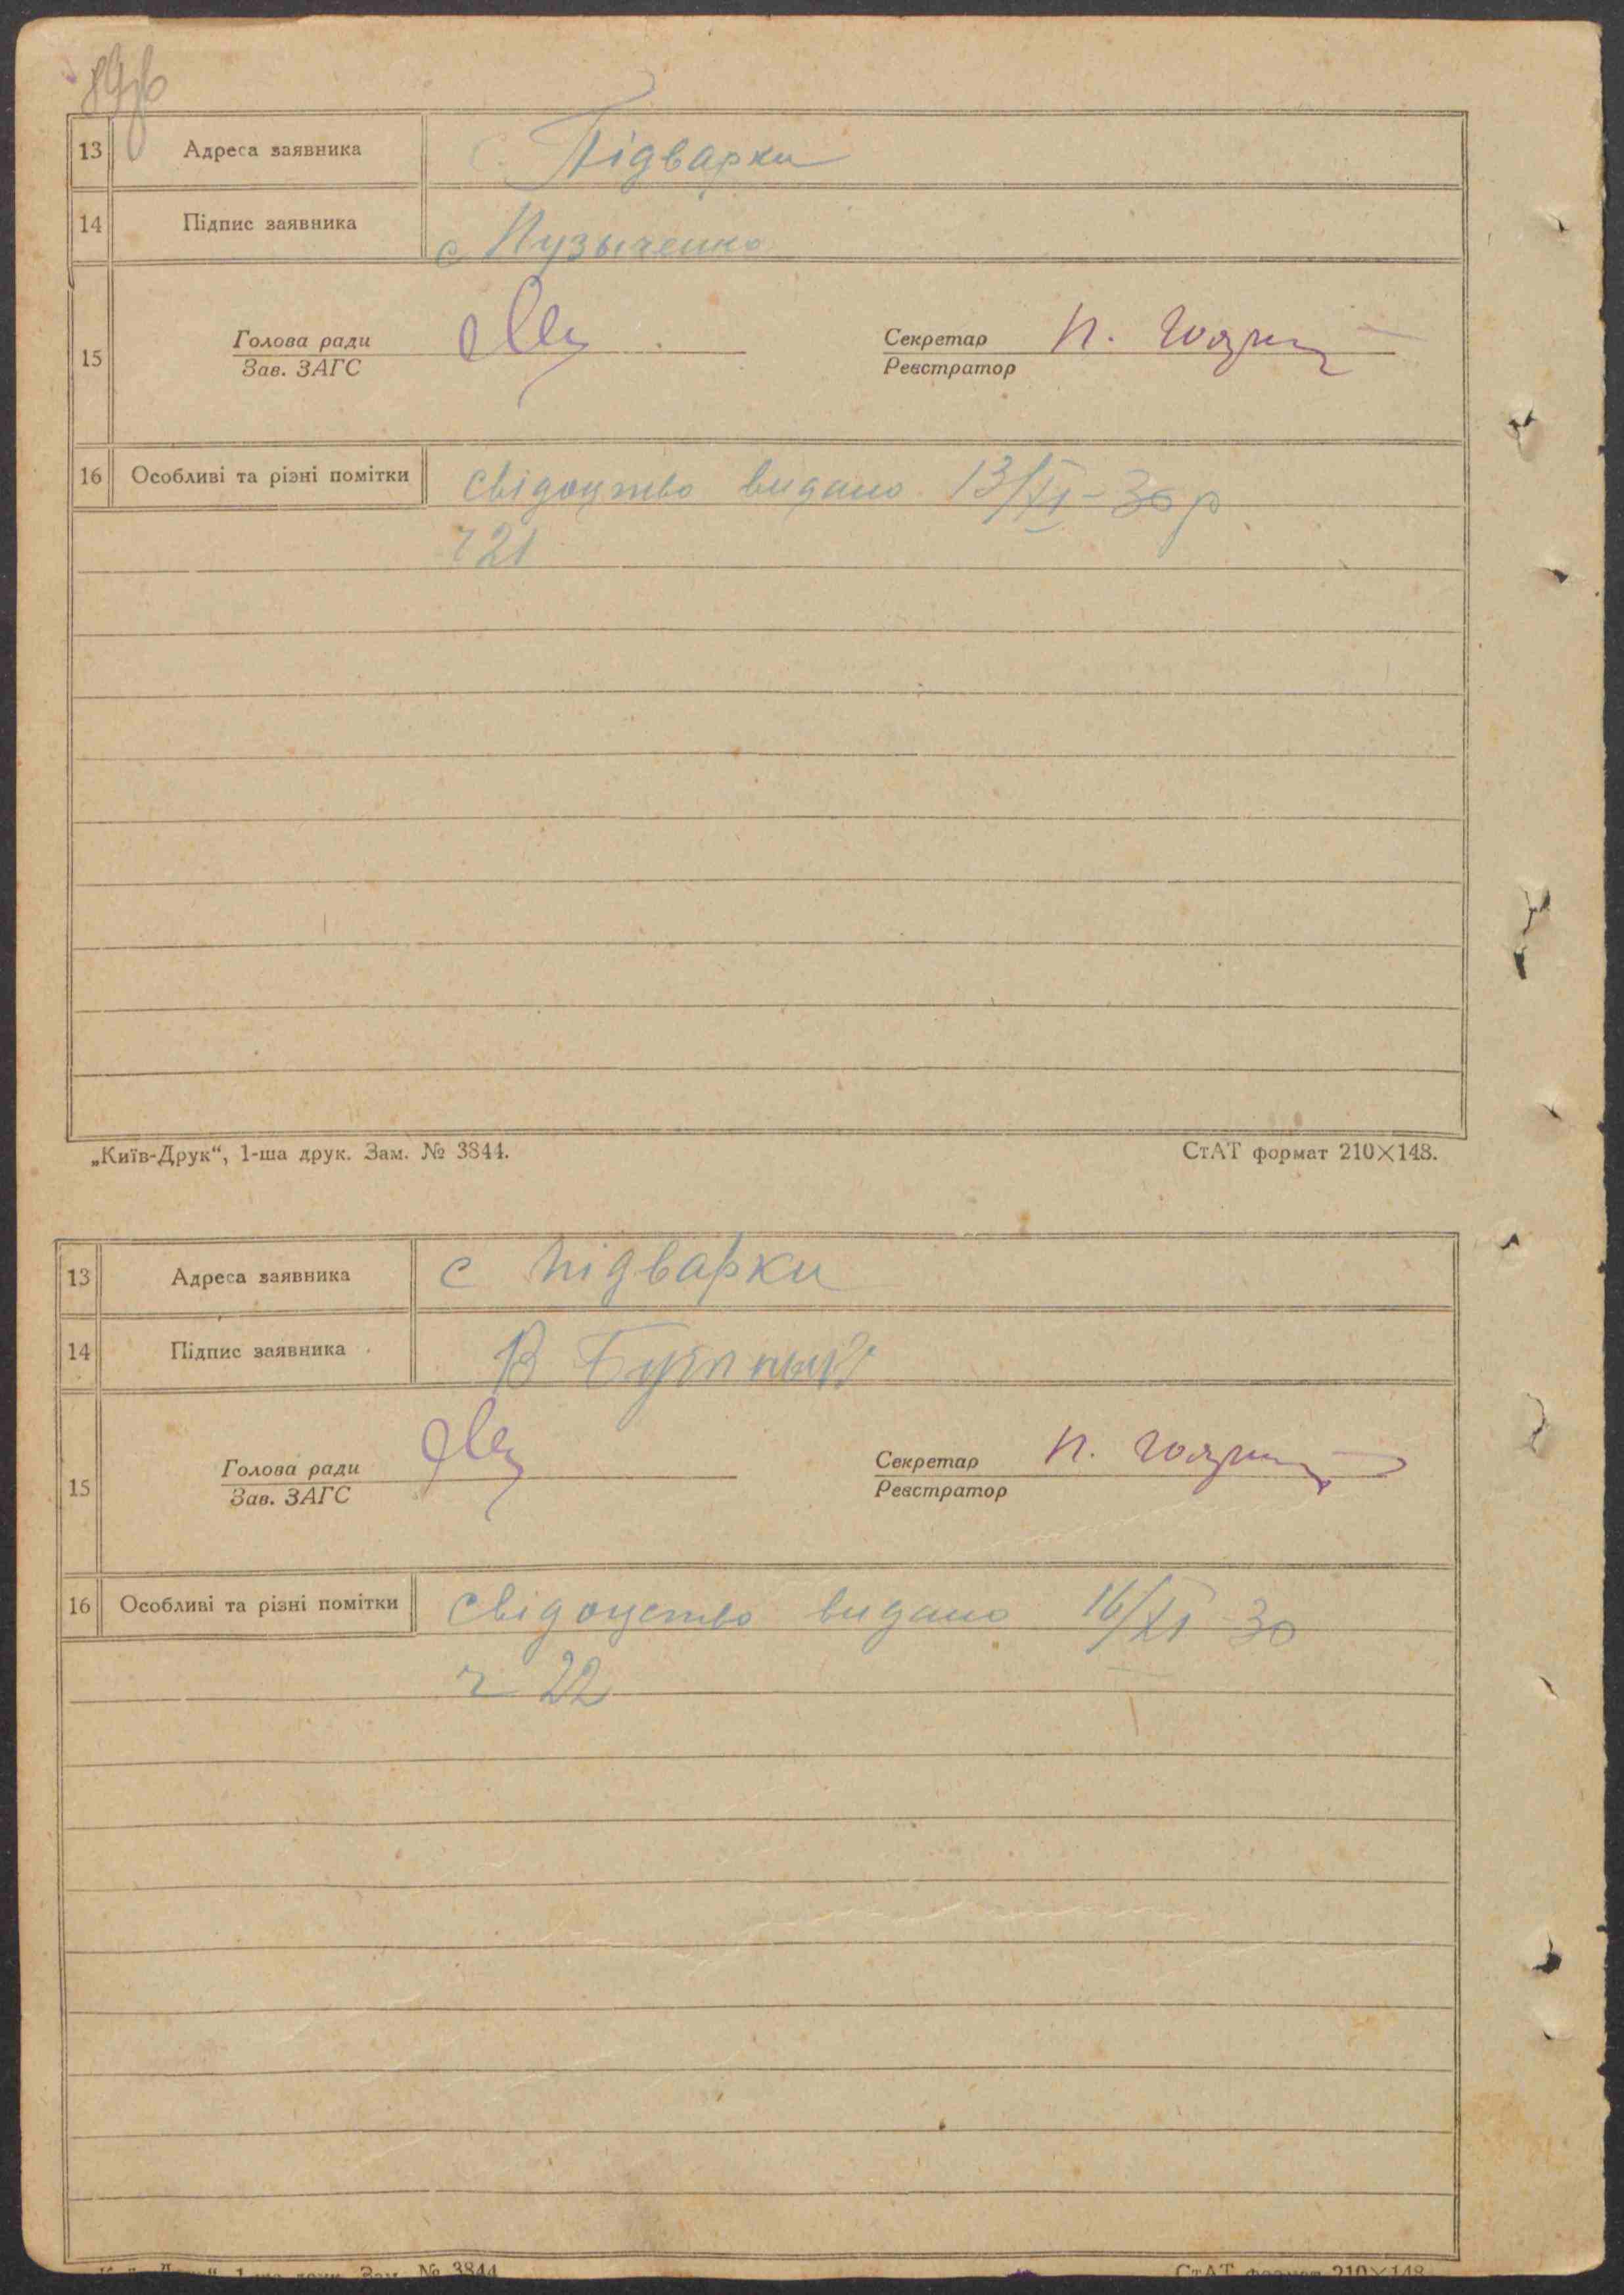 13 Адреса заявника с. Підварки
14 Підпис заявника с Пузыченко
15 Голова ради
Зав. ЗАГС
Секретар П.
Реєстратор
16 Особливі та різні помітки свідоцтво видано 13/XI-30 р
ч 21
„Київ-Друк“, 1-ша друк. Зам. № 3844. СтАТ формат 210×148.
13 Адреса заявника с Підварки
14 Підпис заявника В
15 Голова ради
Зав. ЗАГС
Секретар П.
Реєстратор
16 Особливі та різні помітки свідоцтво видано 16/XI-30
ч 22
№ 3844 СтАТ формат 210×148